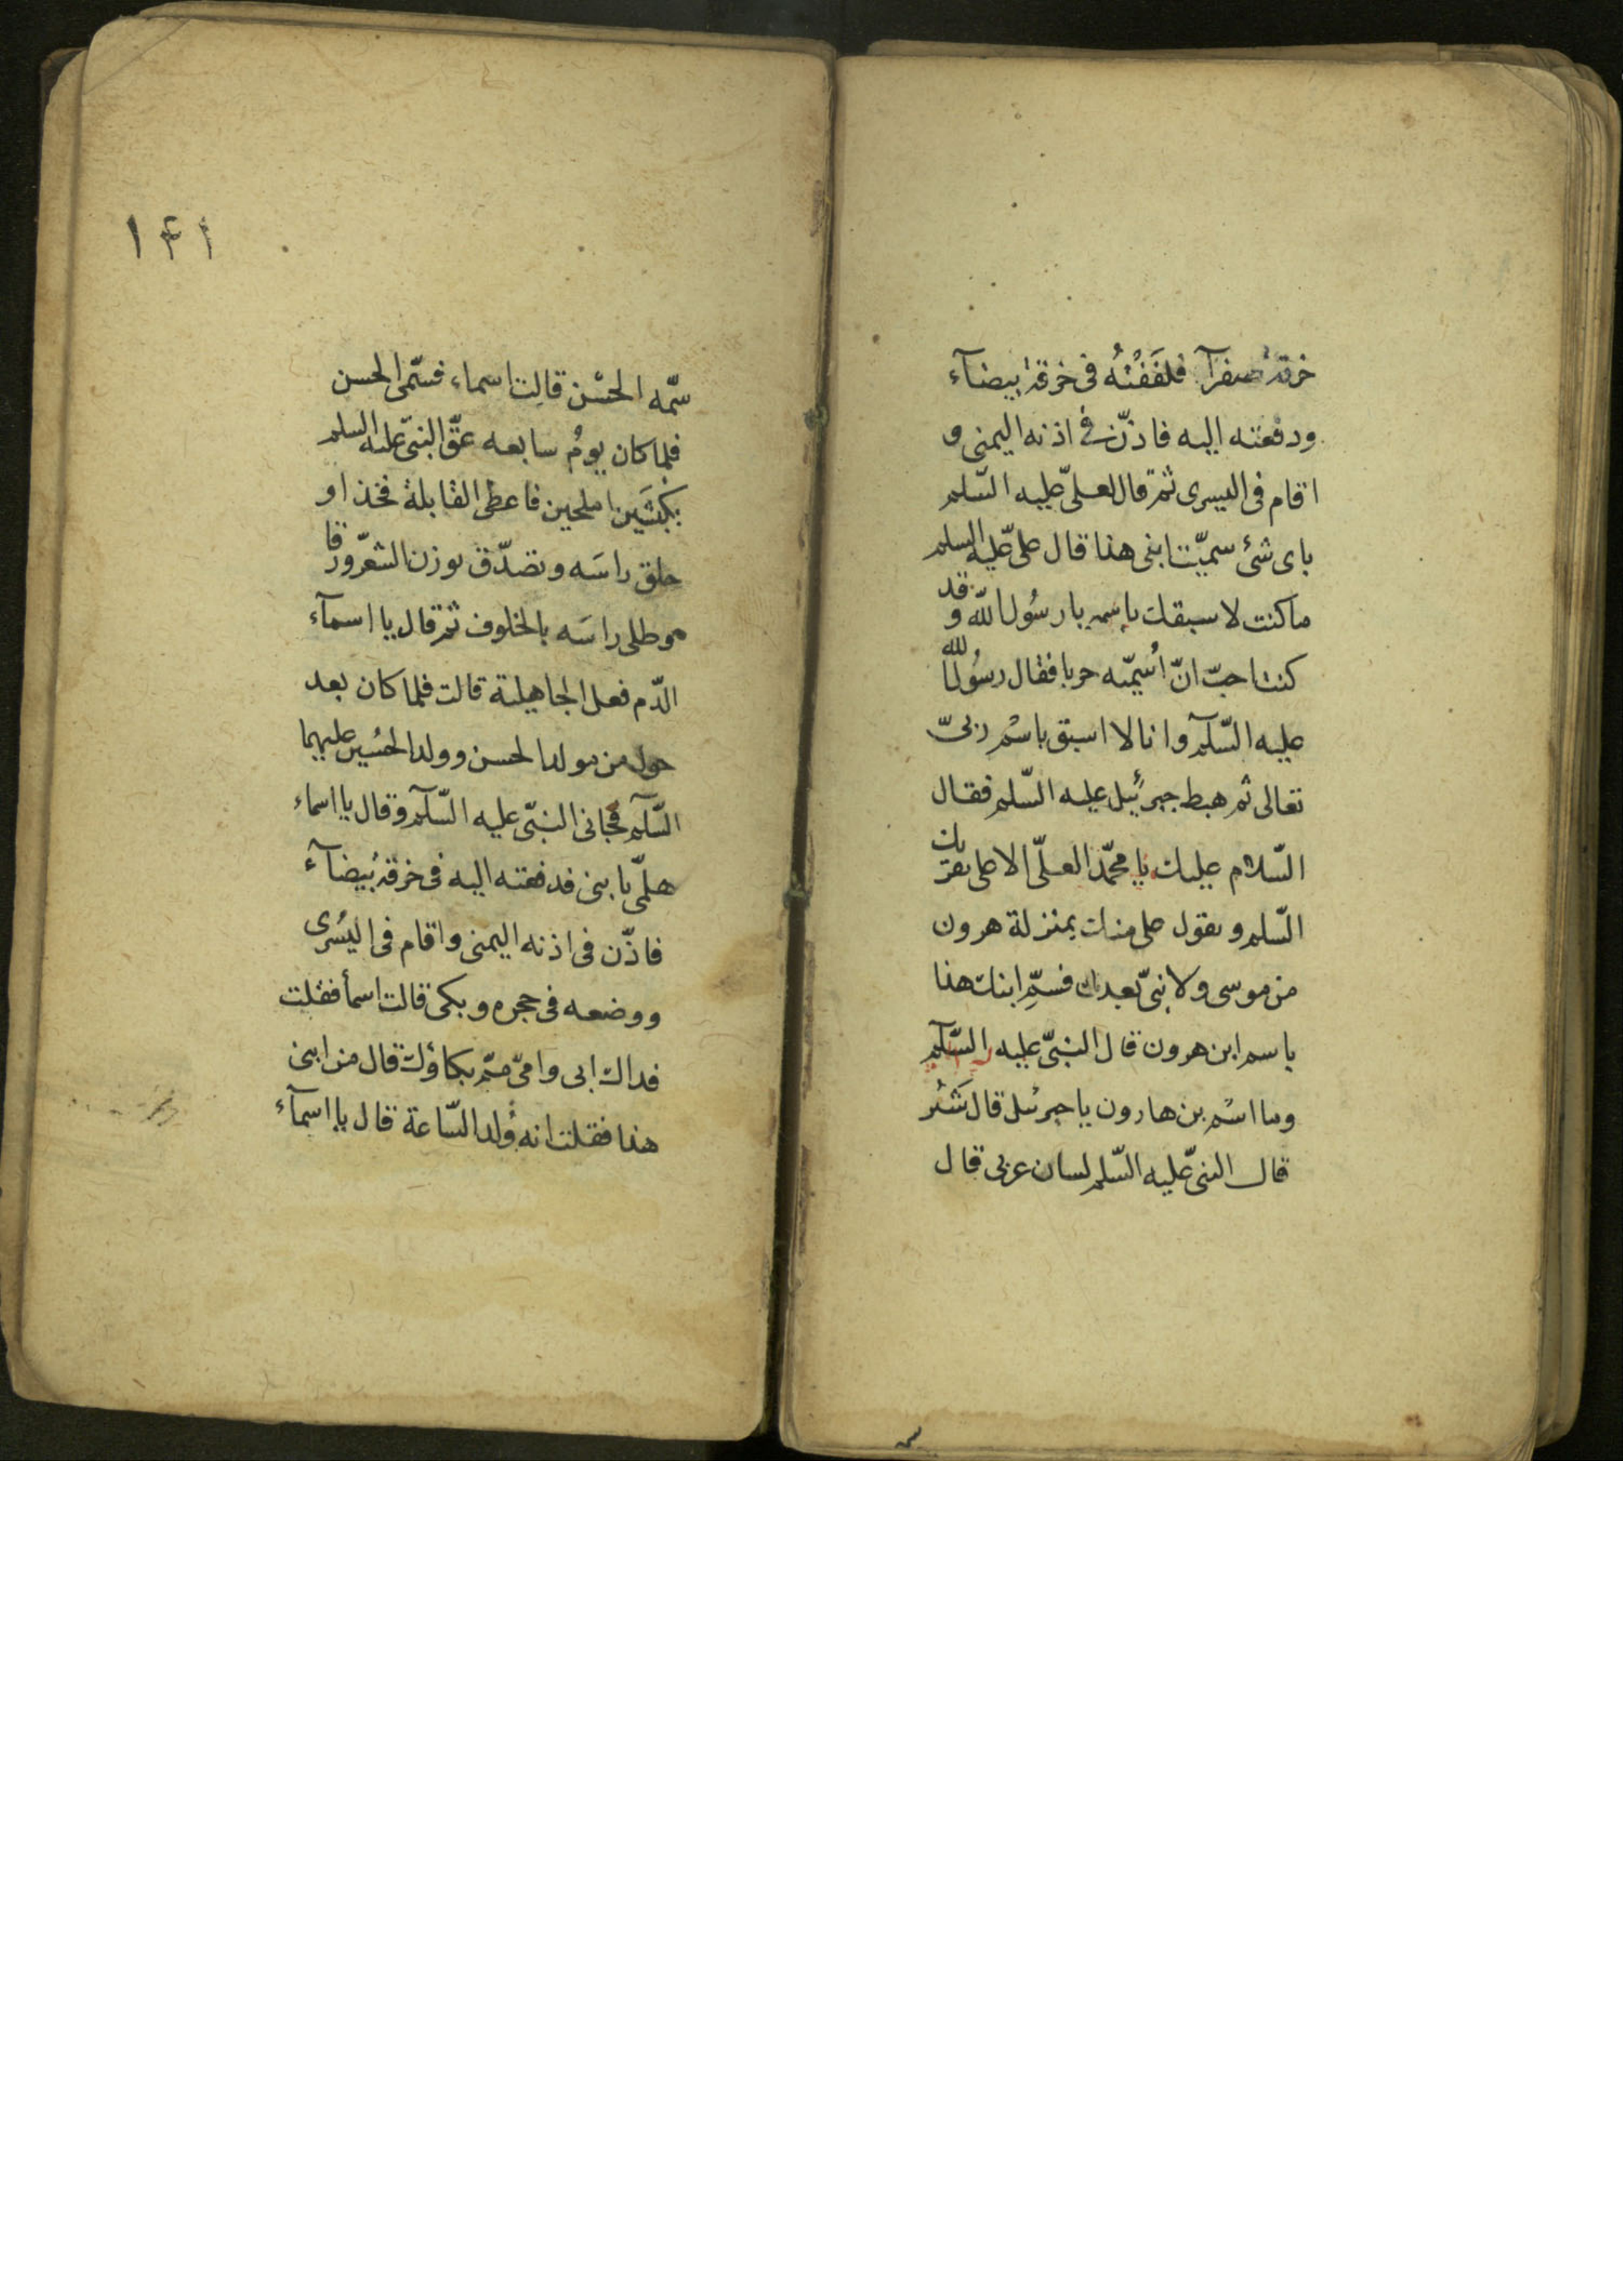 خرقة صفرآ فلَفَفْتُهُ فى خرقة بيضآء
ودفعته اليه فاذّن فى اذنه اليمنى و
اقام فى اليسرى ثم قال لعلىّ عليه السّلم
باى شئ سميّت ابنى هذا قال على عليه السلم
ما كنت لاسبقك باسمه يا رسُول الله وقد
كنت احبّ انّ اُسمّيه حربا فقال رسُول الله
عليه السّلآم وانا لا اسبق باسْم ربىّ
تعالى ثم هبط جبرئيل عليه السّلم فقال
السّلام عليك يا محمّد العلىّ الاعلى يقرئك
السّلم ويقول على منك بمنزلة هرون
من موسى ولا نبىّ بعدك فسمِّ ابنك هذا
باسم ابن هرون قال النبىّ عليه السّلآم
وما اسْم بن هارون يا جبرئيل قال شَبَّر
قال النبىّ عليه السّلم لسان عربى قال
١٤١
سمّه الحسْن قالت اسماء فسمّى الحسن
فلما كان يومُ سابعه عقّ النبىّ عليه السلم
بكبشَين املحين فاعطى القابلة فخذا و
حلق راسَه وتصدّق بوزن الشعر ورقا
وطلى راسَه بالخلوف ثم قال يا اسمآء
الدّم فعل الجاهلية قالت فلما كان بعد
حول من مولد الحسن وولد الحسُين عليهما
السّلآم فجانى النبىّ عليه السّلآم وقال يا اسماء
هلمّى يا بنى فدفعته اليه فى خرقة بُيضآء
فاذّن فى اذنه اليمنى واقام فى اليسُرى
ووضعه فى حجره وبكى قالت اسمأ فقلت
فداك ابى وامىّ ممّ بكاؤك قال من ابنى
هذا فقلت انه وُلد السّاعة قال يا اسمآء